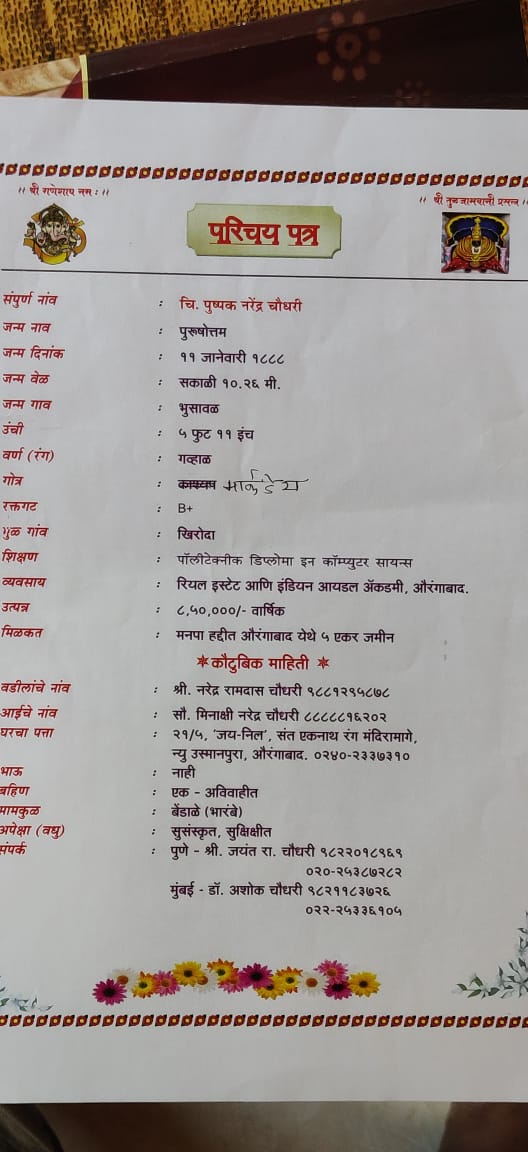 ।। श्री गणेशाय नमः ।।
।। श्री तुळजाभवानी प्रसन्न ।।
परिचय पत्र
संपुर्ण नांव : चि. पुष्पक नरेंद्र चौधरी
जन्म नाव : पुरूषोत्तम
जन्म दिनांक : ११ जानेवारी १९८८
जन्म वेळ : सकाळी १०.२६ मी.
जन्म गाव : भुसावळ
उंची : ५ फुट ११ इंच
वर्ण (रंग) : गव्हाळ
गोत्र : काश्यप मार्कंडेय
रक्तगट : B+
मुळ गांव : खिरोदा
शिक्षण : पॉलीटेक्नीक डिप्लोमा इन कॉम्प्युटर सायन्स
व्यवसाय : रियल इस्टेट आणि इंडियन आयडल ॲकडमी, औरंगाबाद.
उत्पन्न : ८,५०,०००/- वार्षिक
मिळकत : मनपा हद्दीत औरंगाबाद येथे ५ एकर जमीन
कौटुबिक माहिती
वडीलांचे नांव : श्री. नरेद्र रामदास चौधरी ९८८१२९५८७८
आईचे नांव : सौ. मिनाक्षी नरेद्र चौधरी ८८८८८१६२०२
घरचा पत्ता : २१/५, 'जय-निल', संत एकनाथ रंग मंदिरामागे,
न्यु उस्मानपुरा, औरंगाबाद. ०२४०-२३३७३१०
भाऊ : नाही
बहिण : एक - अविवाहीत
मामकुळ : बेंडाळे (भारंबे)
अपेक्षा (वधु) : सुसंस्कृत, सुक्षिक्षीत
संपर्क : पुणे - श्री. जयंत रा. चौधरी ९८२२०१८९६९
०२०-२५३८७२८२
मुंबई - डॉ. अशोक चौधरी ९८२११८३७२६
०२२-२५३३६१०५